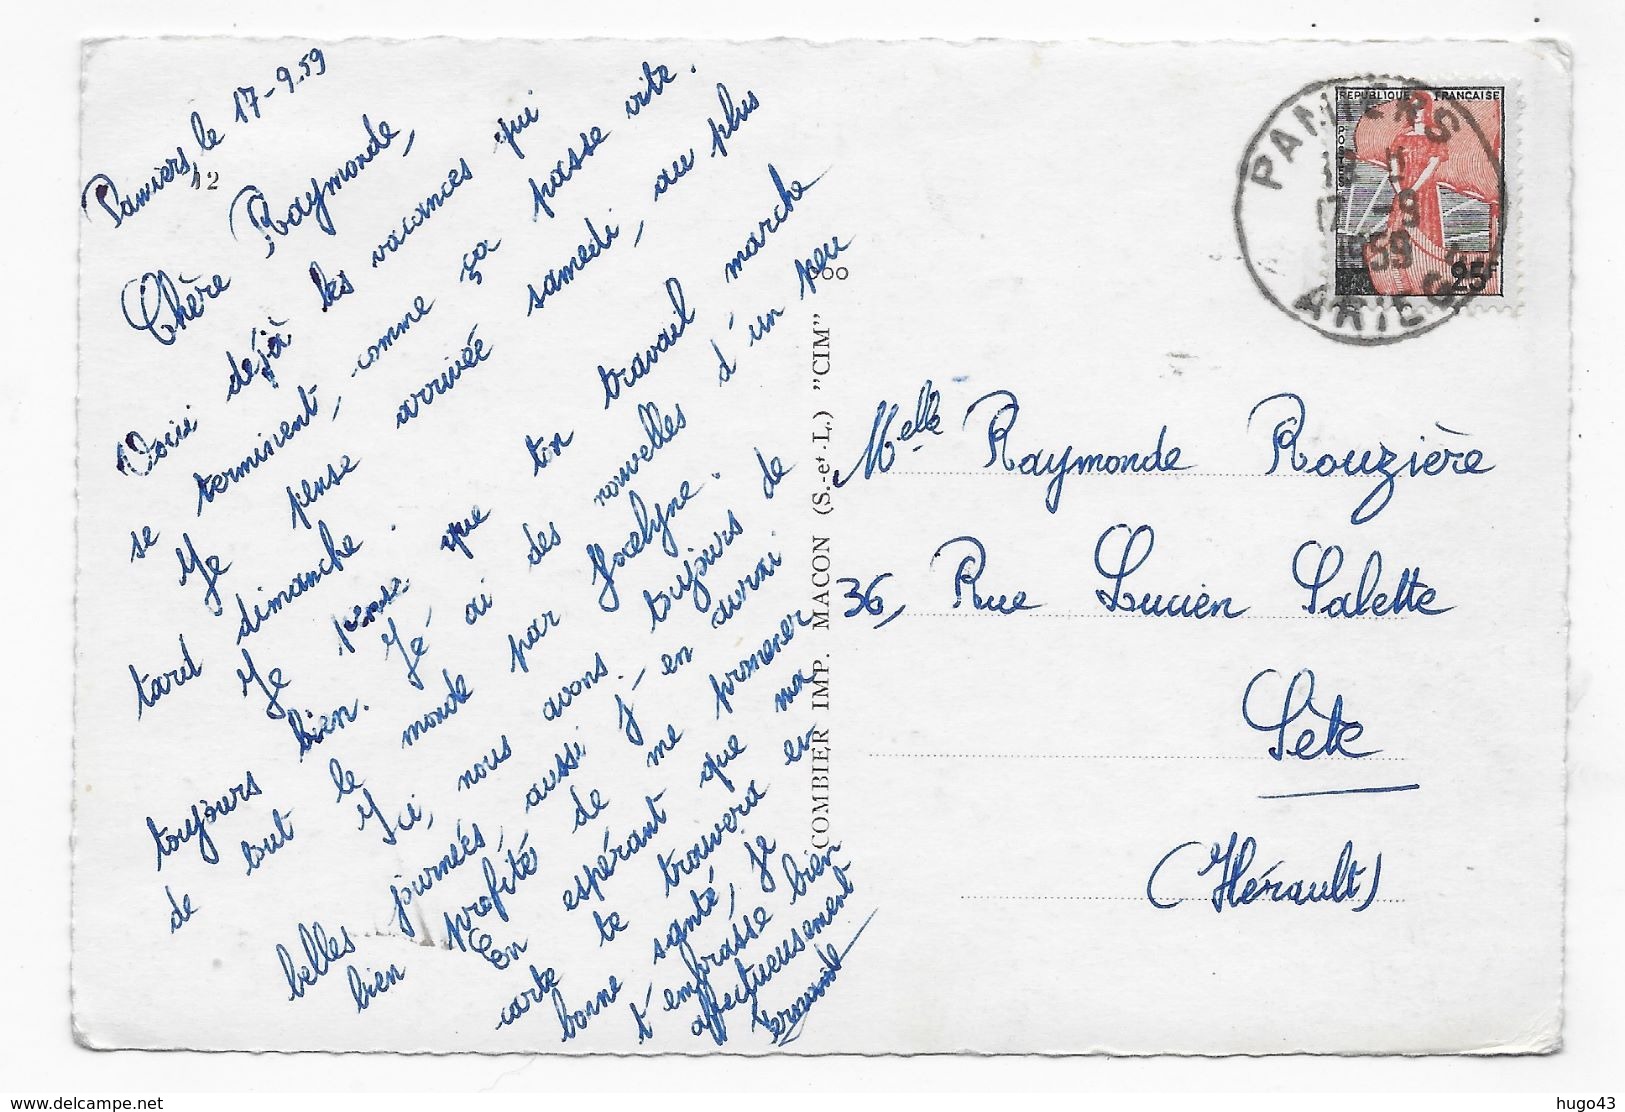 Pamiers, le 17-9.59
12
Chère Raymonde,
Voici déjà les vacances qui
se terminent, comme ça passe vite.
Je pense arrivée samedi, au plus
tard dimanche.
Je pense que ton travail marche
toujours bien. J'ai des nouvelles d'un peu
de tout le monde par Jocelyne.
Ici, nous avons toujours de
belles journées, aussi j'en aurai
bien profité de me promener
En espérant que ma
carte te trouvera en
bonne santé, je
t'embrasse bien
affectueusement
COMBIER IMP. MACON (S.-et-L.) "CIM"
REPUBLIQUE FRANCAISE
POSTES
25F
PAMIERS
18 H
17 -9
1959
ARIEGE
Melle Raymonde Rouzière
36, Rue Lucien Salette
Sète
(Hérault)
delcampe.net
hugo43